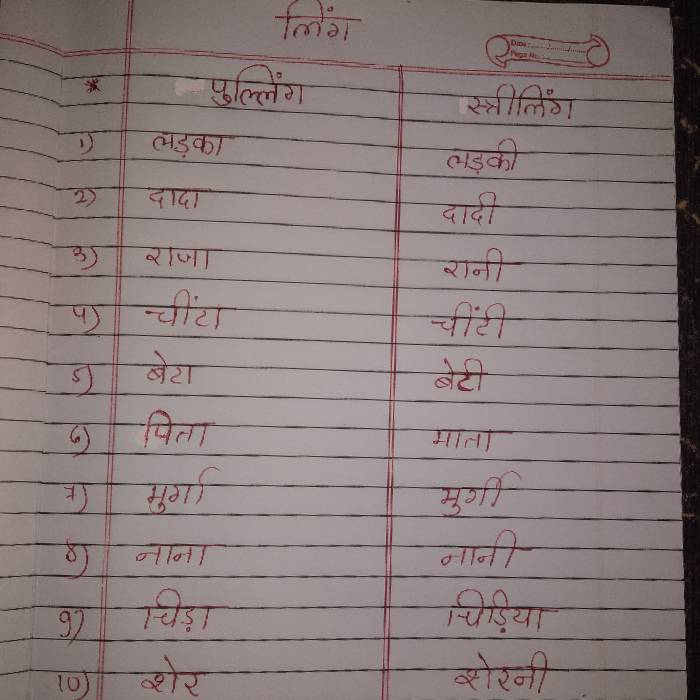 लिंग
Date :
Page No. :
* पुल्लिंग स्त्रीलिंग
1) लड़का लड़की
2) दादा दादी
3) राजा रानी
4) चींटा चींटी
5) बेटा बेटी
6) पिता माता
7) मुर्गा मुर्गी
8) नाना नानी
9) चिड़ा चिड़िया
10) शेर शेरनी